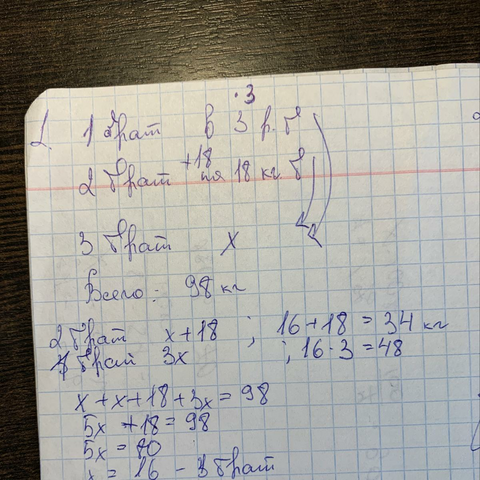 ·3
1. 1 брат в 3 р. б
+18
2 брат на 18 кг. б
3 брат x
Всего: 98 кг
2 брат x+18 ; 16+18=34 кг
1 брат 3x ; 16·3=48
x+x+18+3x=98
5x+18=98
5x=80
x=16 - 3 брат